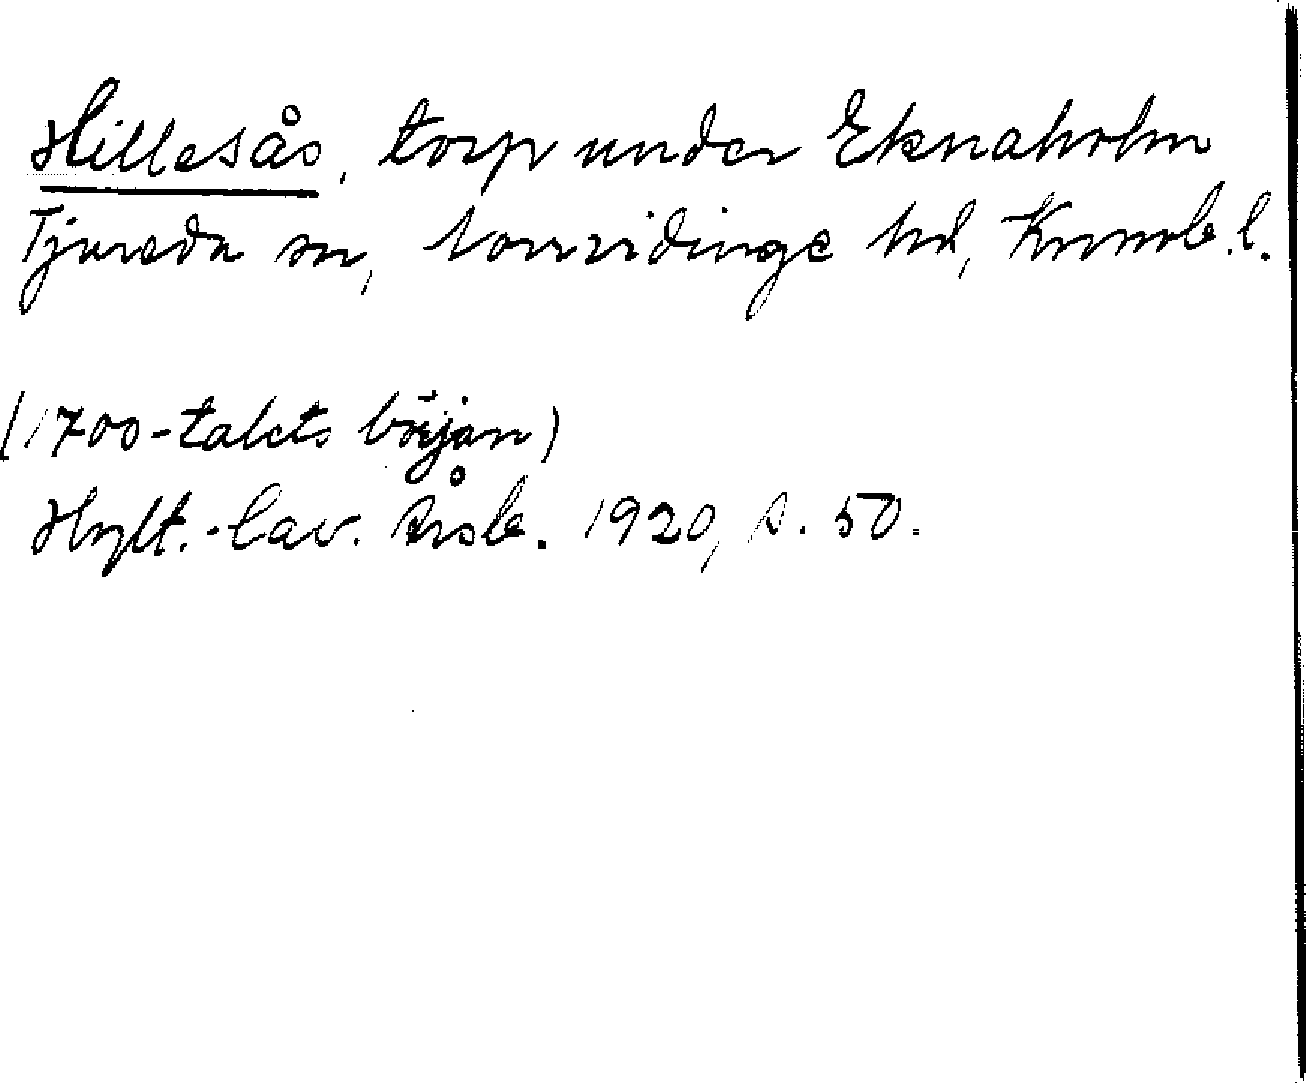 Hillesås, torp under Eknaholm
Tjureda sn, Norrvidinge hd, Kronob. l.
(1700-talets början)
Hylt.-Cav. Årsb. 1920, s. 50.